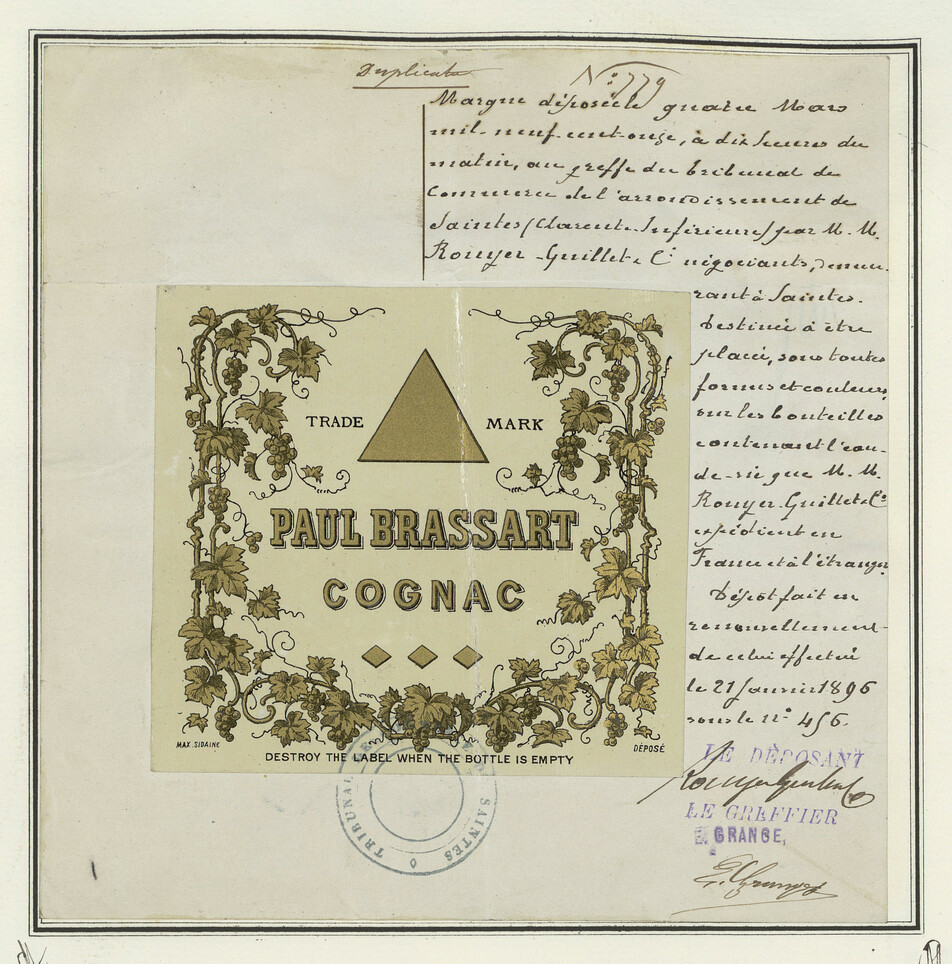 Duplicata
N° 779
Marque déposée le quatre Mars
mil-neuf-cent-onze, à dix heures du
matin, au greffe du tribunal de
Commerce de l'arrondissement de
Saintes (Charente-Inférieure) par M. M.
Rouyer-Guillet & Cie négociants, demeu-
rant à Saintes.
Destinée à être
placée, sous toutes
formes et couleurs,
sur les bouteilles
contenant l'eau-
de-vie que M. M.
Rouyer-Guillet & Cie
expédient en
France et à l'étranger
Dépôt fait en
renouvellement
de celui effectué
le 21 Janvier 1896
sous le n° 456.
TRADE MARK
PAUL BRASSART
COGNAC
MAX. SIDAINE
DÉPOSÉ
DESTROY THE LABEL WHEN THE BOTTLE IS EMPTY
TRIBUNAL DE SAINTES
LE DÉPOSANT
Rouyer Guillet & Co
LE GREFFIER
E. GRANGE,
E. Grange